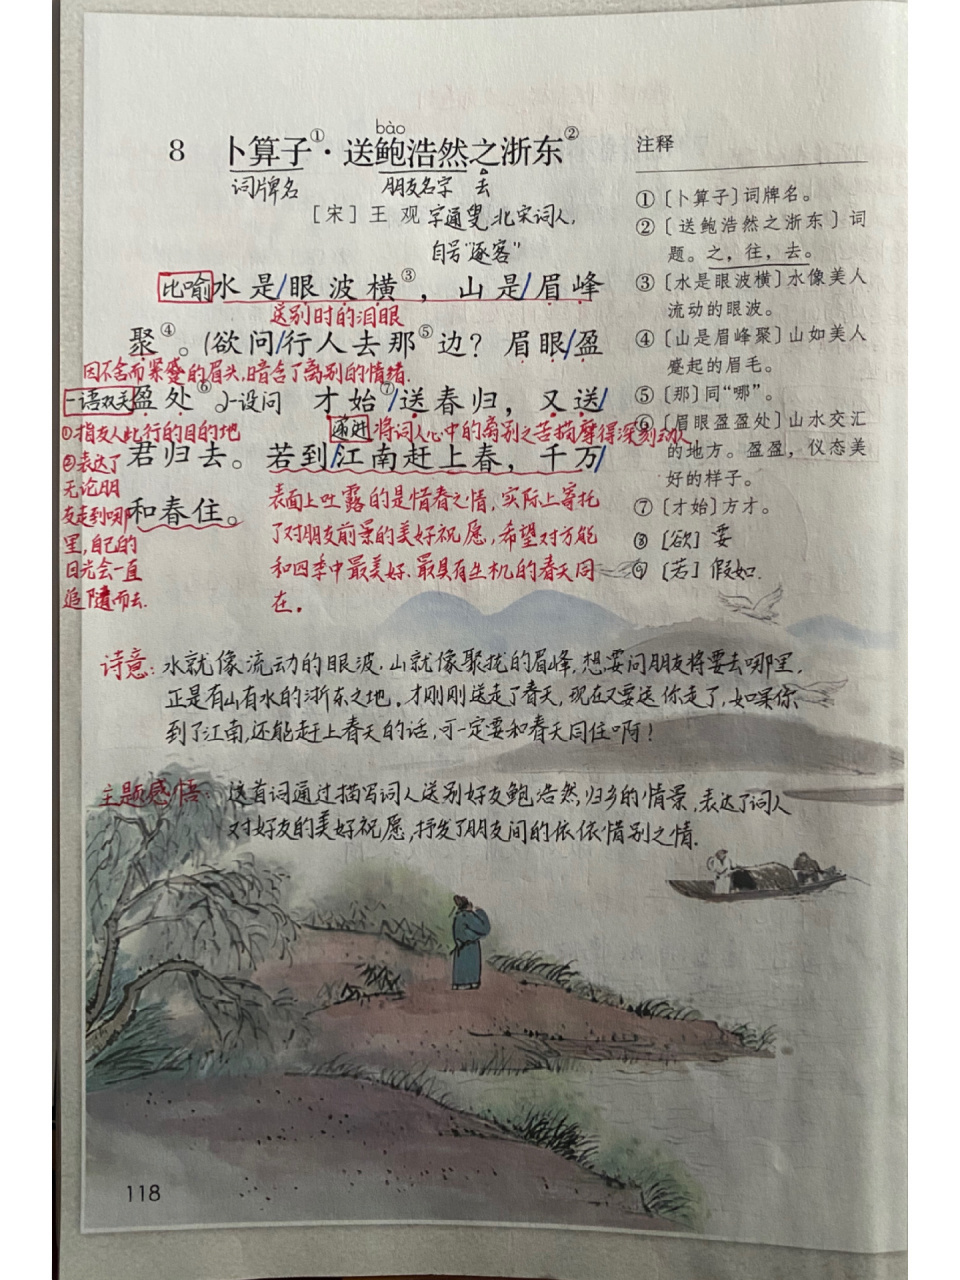 bào
8 卜算子①·送鲍浩然之浙东②
词牌名 朋友名字 去
［宋］王 观 字通叟,北宋词人,
自号“逐客”
比喻 水是/眼波横③，山是/眉峰
送别时的泪眼
聚④。(欲问/行人去那⑤边？眉眼/盈
因不舍而紧蹙的眉头,暗含了离别的情绪.
一语双关 盈处⑥。)-设问 才始⑦/送春归，又送/
①指友人此行的目的地
递进 将词人心中的离别之苦描摩得深刻动人
君归去。若到/江南赶上春，千万/
②表达了
无论朋
友走到哪
里,自己的
目光会一直
追随而去.
和春住。
表面上吐露的是惜春之情,实际上寄托
了对朋友前景的美好祝愿,希望对方能
和四季中最美好、最具有生机的春天同
在。
注释
①〔卜算子〕词牌名。
②〔送鲍浩然之浙东〕词
题。之，往，去。
③〔水是眼波横〕水像美人
流动的眼波。
④〔山是眉峰聚〕山如美人
蹙起的眉毛。
⑤〔那〕同“哪”。
⑥〔眉眼盈盈处〕山水交汇
的地方。盈盈，仪态美
好的样子。
⑦〔才始〕方才。
⑧〔欲〕要
⑨〔若〕假如.
诗意: 水就像流动的眼波,山就像聚拢的眉峰,想要问朋友将要去哪里,
正是有山有水的浙东之地。才刚刚送走了春天,现在又要送你走了,如果你
到了江南,还能赶上春天的话,可一定要和春天同住啊!
主题感悟: 这首词通过描写词人送别好友鲍浩然归乡的情景,表达了词人
对好友的美好祝愿,抒发了朋友间的依依惜别之情.
118